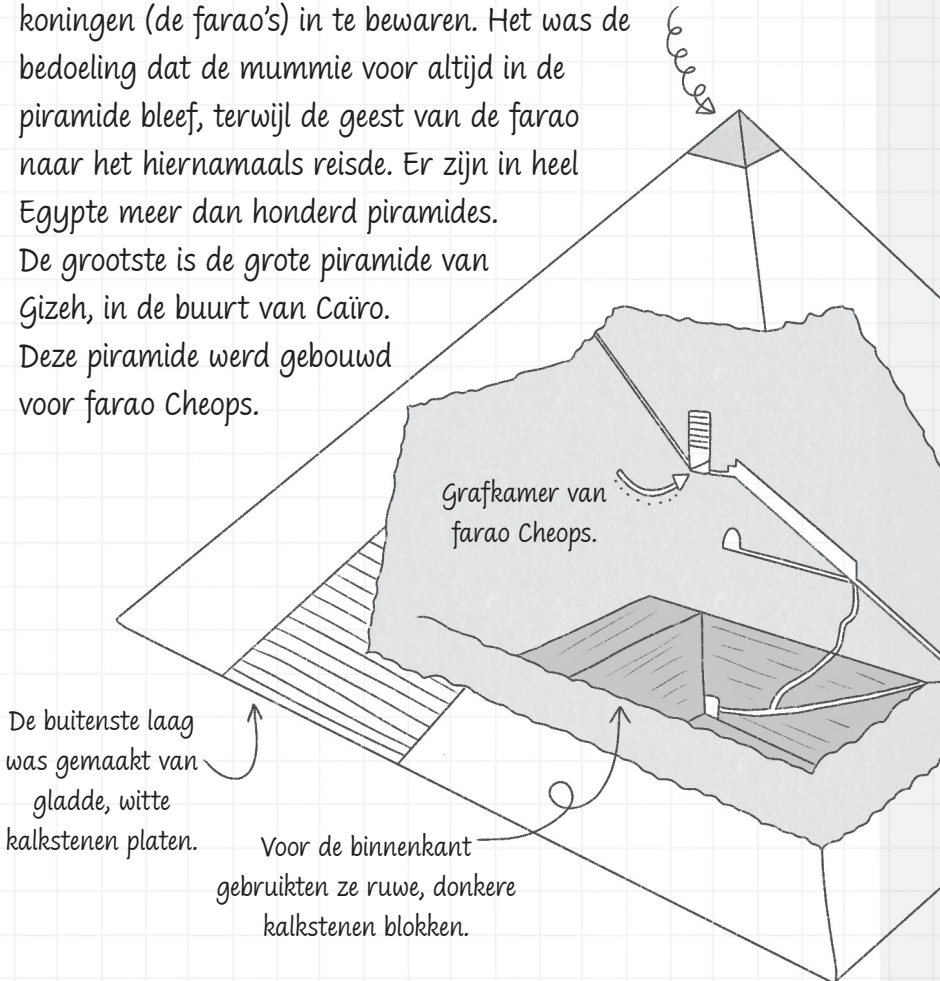 koningen (de farao's) in te bewaren. Het was de
bedoeling dat de mummie voor altijd in de
piramide bleef, terwijl de geest van de farao
naar het hiernamaals reisde. Er zijn in heel
Egypte meer dan honderd piramides.
De grootste is de grote piramide van
Gizeh, in de buurt van Caïro.
Deze piramide werd gebouwd
voor farao Cheops.
Grafkamer van
farao Cheops.
De buitenste laag
was gemaakt van
gladde, witte
kalkstenen platen.
Voor de binnenkant
gebruikten ze ruwe, donkere
kalkstenen blokken.